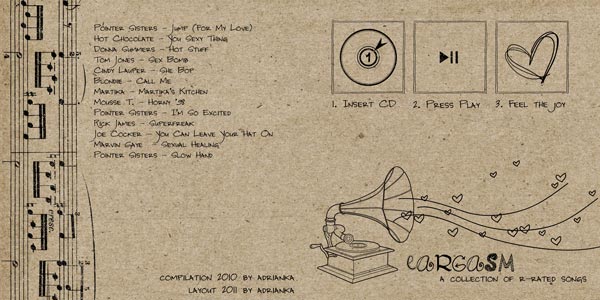 Pointer Sisters - Jump (For My Love)
Hot Chocolate - You Sexy Thing
Donna Summers - Hot Stuff
Tom Jones - Sex Bomb
Cindy Lauper - She Bop
Blondie - Call Me
Martika - Martika's Kitchen
Mousse T. - Horny '98
Pointer Sisters - I'm So Excited
Rick James - Superfreak
Joe Cocker - You Can Leave Your Hat On
Marvin Gaye - Sexual Healing
Pointer Sisters - Slow Hand
1
1. Insert CD
2. Press Play
3. Feel the joy
eaRgaSM
a collection of R-rated songs
compilation 2010 by adrianka
layout 2011 by adrianka